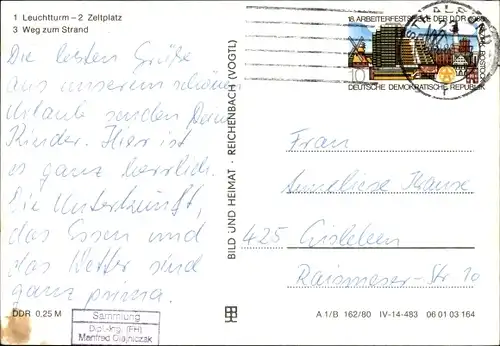 1 Leuchtturm – 2 Zeltplatz
3 Weg zum Strand
Die besten Grüße
aus unserem schönen
Urlaub senden Deine
Kinder. Hier ist
es ganz herrlich.
Die Unterkunft,
das Essen und
das Wetter sind
ganz prima.
DDR 0,25 M
Sammlung
Dipl.-Ing. (FH)
Manfred Olejniczak
BILD UND HEIMAT · REICHENBACH (VOGTL)
18. ARBEITERFESTSPIELE DER DDR 1980
BEZIRK ROSTOCK
10
DEUTSCHE DEMOKRATISCHE REPUBLIK
Frau
Anneliese Krause
425 Eisleben
Raismeser-Str. 10
A 1/B 162/80 IV-14-483 06 01 03 164